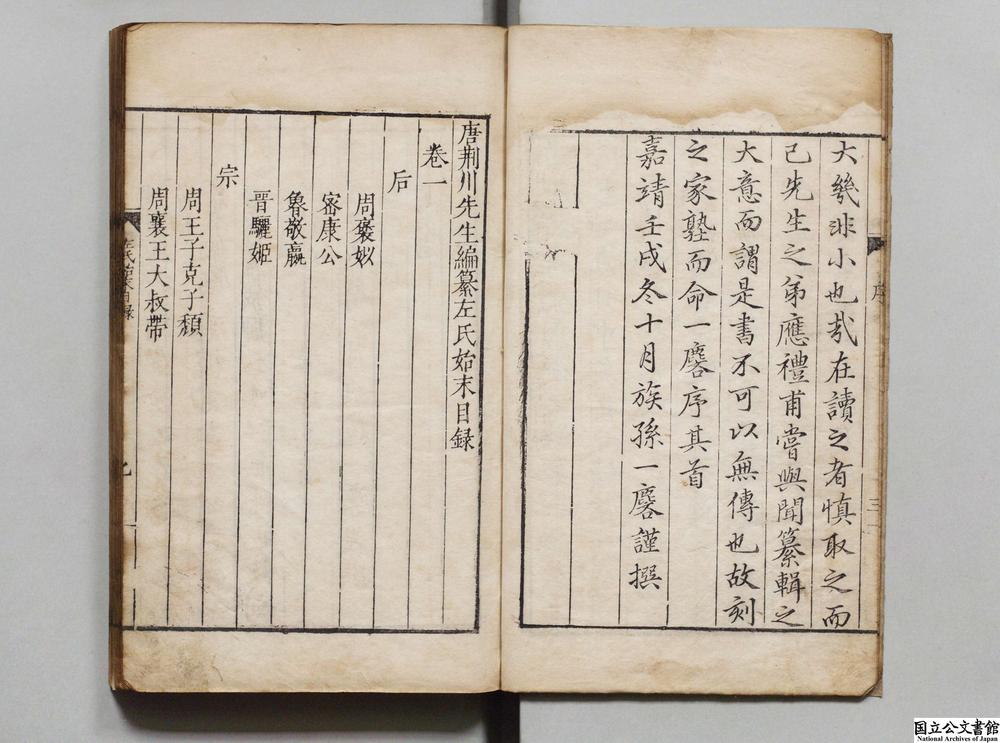 大幾非小也哉在讀之者慎取之而
已先生之弟應禮甫嘗與聞纂輯之
大意而謂是書不可以無傳也故刻
之家塾而命一麐序其首
嘉靖壬戌冬十月族孫一麐謹撰
序
三
唐荊川先生編纂左氏始末目録
卷一
后
周褒姒
密康公
魯敬嬴
晋驪姬
宗
周王子克子頹
周襄王大叔帶
左氏始末目録
国立公文書館
National Archives of Japan